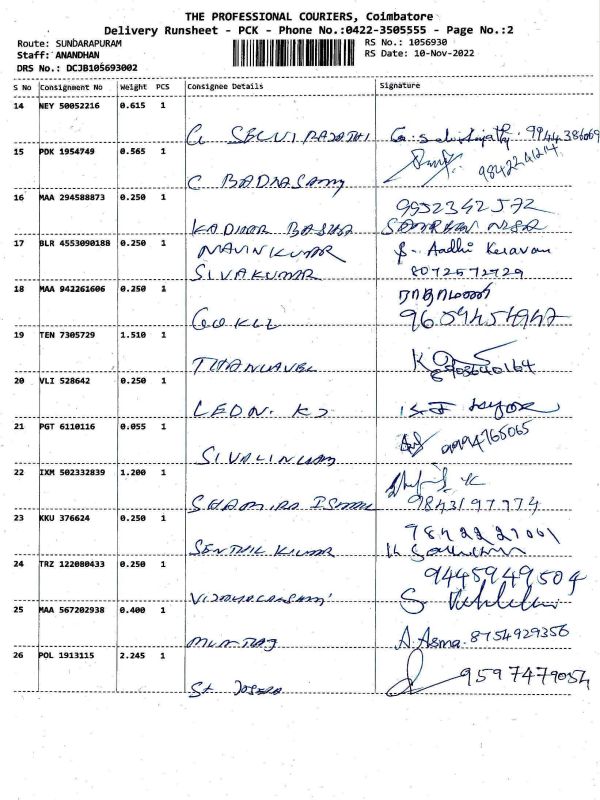 THE PROFESSIONAL COURIERS, Coimbatore
Delivery Runsheet - PCK - Phone No.:0422-3505555 - Page No.:2
Route: SUNDARAPURAM RS No.: 1056930
Staff: ANANDHAN RS Date: 10-Nov-2022
DRS No.: DCJB105693002
S No Consignment No Weight PCS Consignee Details Signature
14 NEY 50052216 0.615 1
G SELVI RAJATHI
15 PDK 1954749 0.565 1
C BADRASAMY 9842241214
16 MAA 294588873 0.250 1 9952342572
KADHAR BASHA
17 BLR 4553090188 0.250 1 NAVIN KUMAR S. Aadhi Kesavan
SIVAKUMAR 8072572729
18 MAA 942261606 0.250 1 ராதாமணி
GOKUL
19 TEN 7305729 1.510 1
THANGAVEL
20 VLI 528642 0.250 1
LEON. KJ
21 PGT 6110116 0.055 1 9994765065
SIVALINGAM
22 IXM 502332839 1.200 1
SHAMIRA ISMAIL 9843197774
23 KKU 376624 0.250 1 9842227001
SENTHIL KUMAR
24 TRZ 122080433 0.250 1 9445949504
25 MAA 567202938 0.400 1
MUMTAJ A. Asma 8754929356
26 POL 1913115 2.245 1 9597479054
St JOSEPH